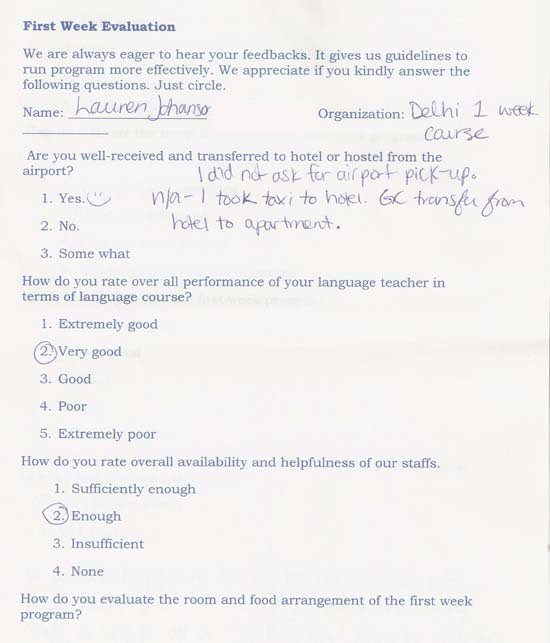 First Week Evaluation
We are always eager to hear your feedbacks. It gives us guidelines to
run program more effectively. We appreciate if you kindly answer the
following questions. Just circle.
Name: Lauren Johanso Organization: Delhi 1 week
course
Are you well-received and transferred to hotel or hostel from the
airport? I did not ask for airport pick-up.
1. Yes. n/a - I took taxi to hotel. GC transfer from
2. No. hotel to apartment.
3. Some what
How do you rate over all performance of your language teacher in
terms of language course?
1. Extremely good
2. Very good
3. Good
4. Poor
5. Extremely poor
How do you rate overall availability and helpfulness of our staffs.
1. Sufficiently enough
2. Enough
3. Insufficient
4. None
How do you evaluate the room and food arrangement of the first week
program?